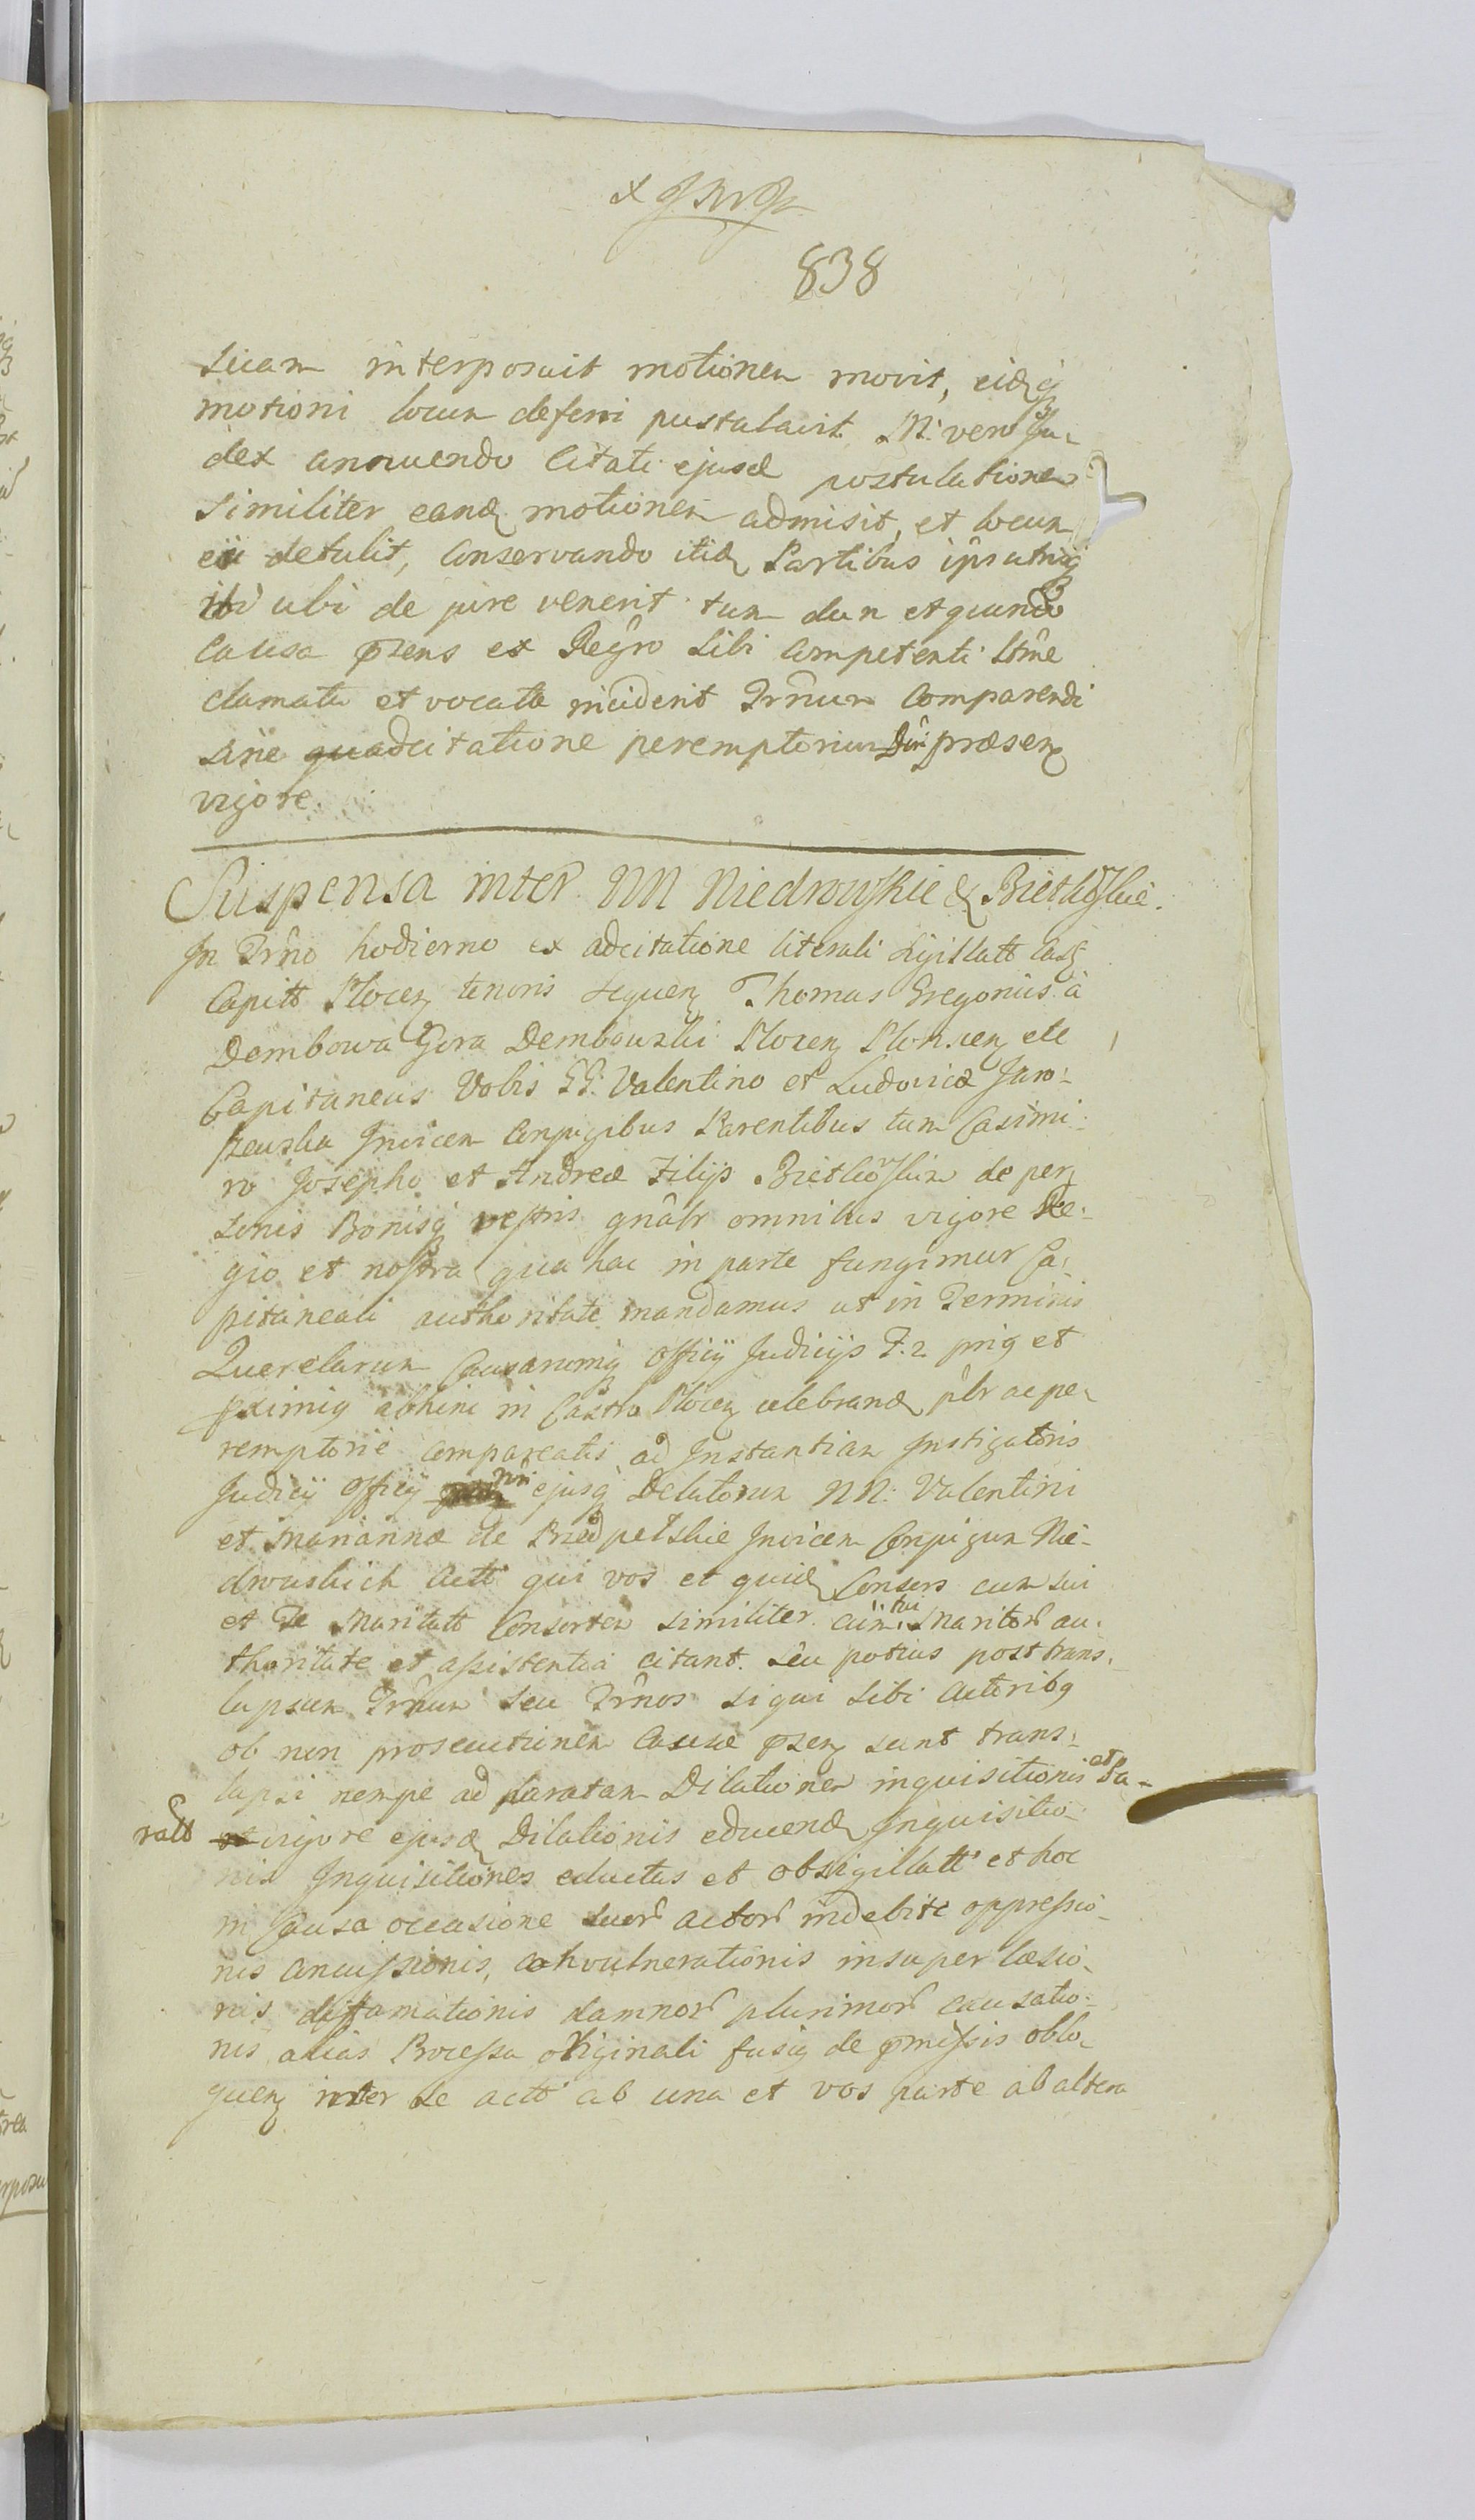 838
suam interposuit motionem movit, eidq
motioni locum deferri postulavit. M. vero Ju-
dex annuendo Citati ejusd postulationem
similiter eand motionem admisit, et locum
eii detulit, Conservando itid Partibus ipsis utrisq
ibi ubi de jure venerit tum dum et quando
Causa pñsens ex Regro sibi Competenti ltime
clamata et vocata inciderit Trmum Comparendi
sine adcitatione peremptorium Dñi præsen
vigore.
Suspensa inter NN Niedrowskie & Bietkowskie.
In Trño hodierno ex adcitatione literali sigillatt Cast
Capitt Plocen tenoris sequen Thomas Gregorius à
Dembowa Gora Dembowski Plocen Plonscen etc
Capitaneus Vobis GG: Valentino et Ludovicæ Jaro-
szewska Invicem Conjugibus Parentibus tum Casimi-
ro Josepho et Andreæ Filijs Bietkowskim de per
sonis Bonisq vestris gnâlr omnibus vigore Re-
gio et nostra qua hac in parte fungimur Ca-
pitaneali authoritate mandamus ut in Terminis
Querelarum Causarumq Officij Judicijs F. 2 prig et
pximig abhinc in Castro Plocen celebrand pêlr ac pe-
remptorie compareatis ad Instantiam Instigatoris
Judicij Officij nri ejusq Delatorum NN: Valentini
et Mariannæ de Przedpelskie Invicem Conjugum Nie-
drowskich Actt qui vos et quid Consors cum sui
et Te Maritatt Consortem similiter cum tui Maritorr au-
thoritate et assistentia citant. seu potius post trans-
lapsum Trmum seu Trños si qui sibi Actoribq
ob non prosecutionem Causæ pñsen sunt trans-
lapsi nempe ad paratam Dilationem inquisitionis et Pa-
ratt vigore ejusd Dilationis educend Inquisitio
nis Inquisitiones eductas et obsigillatt et hoc
in Causa occasione suorr actorr indebite oppressio-
nis concussionis, Convulnerationis insuper læsio-
nis diffamationis damnorr plurimorr causatio-
nis alias Processu originali fusig de pmissis oblo-
quen inter se actt ab una et vos parte ab altera